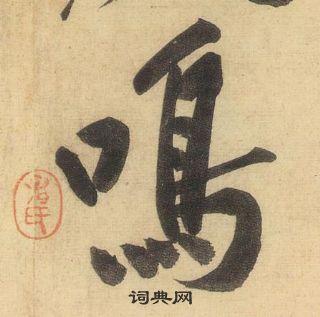 鳴
词典网